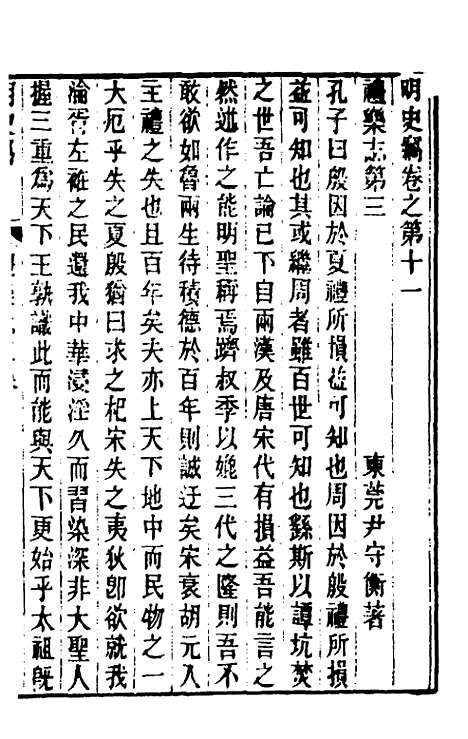 明史竊卷之第十一
禮樂志第三
東莞尹守衡著
孔子曰殷因於夏禮所損益可知也周因於殷禮所損
益可知也其或繼周者雖百世可知也繇斯以譚坑焚
之世吾亡論已下自兩漢及唐宋代有損益吾能言之
然述作之能明聖稱焉躋叔季以媲三代之隆則吾不
敢欲如魯兩生待積德於百年則誠迂矣宋衰胡元入
主禮之失也且百年矣夫亦上天下地中而民物之一
大厄乎失之夏殷猶曰求之杞宋失之夷狄卽欲就我
淪胥左衽之民還我中華浸淫久而習染深非大聖人
握三重爲天下王孰議此而能與天下更始乎太祖旣